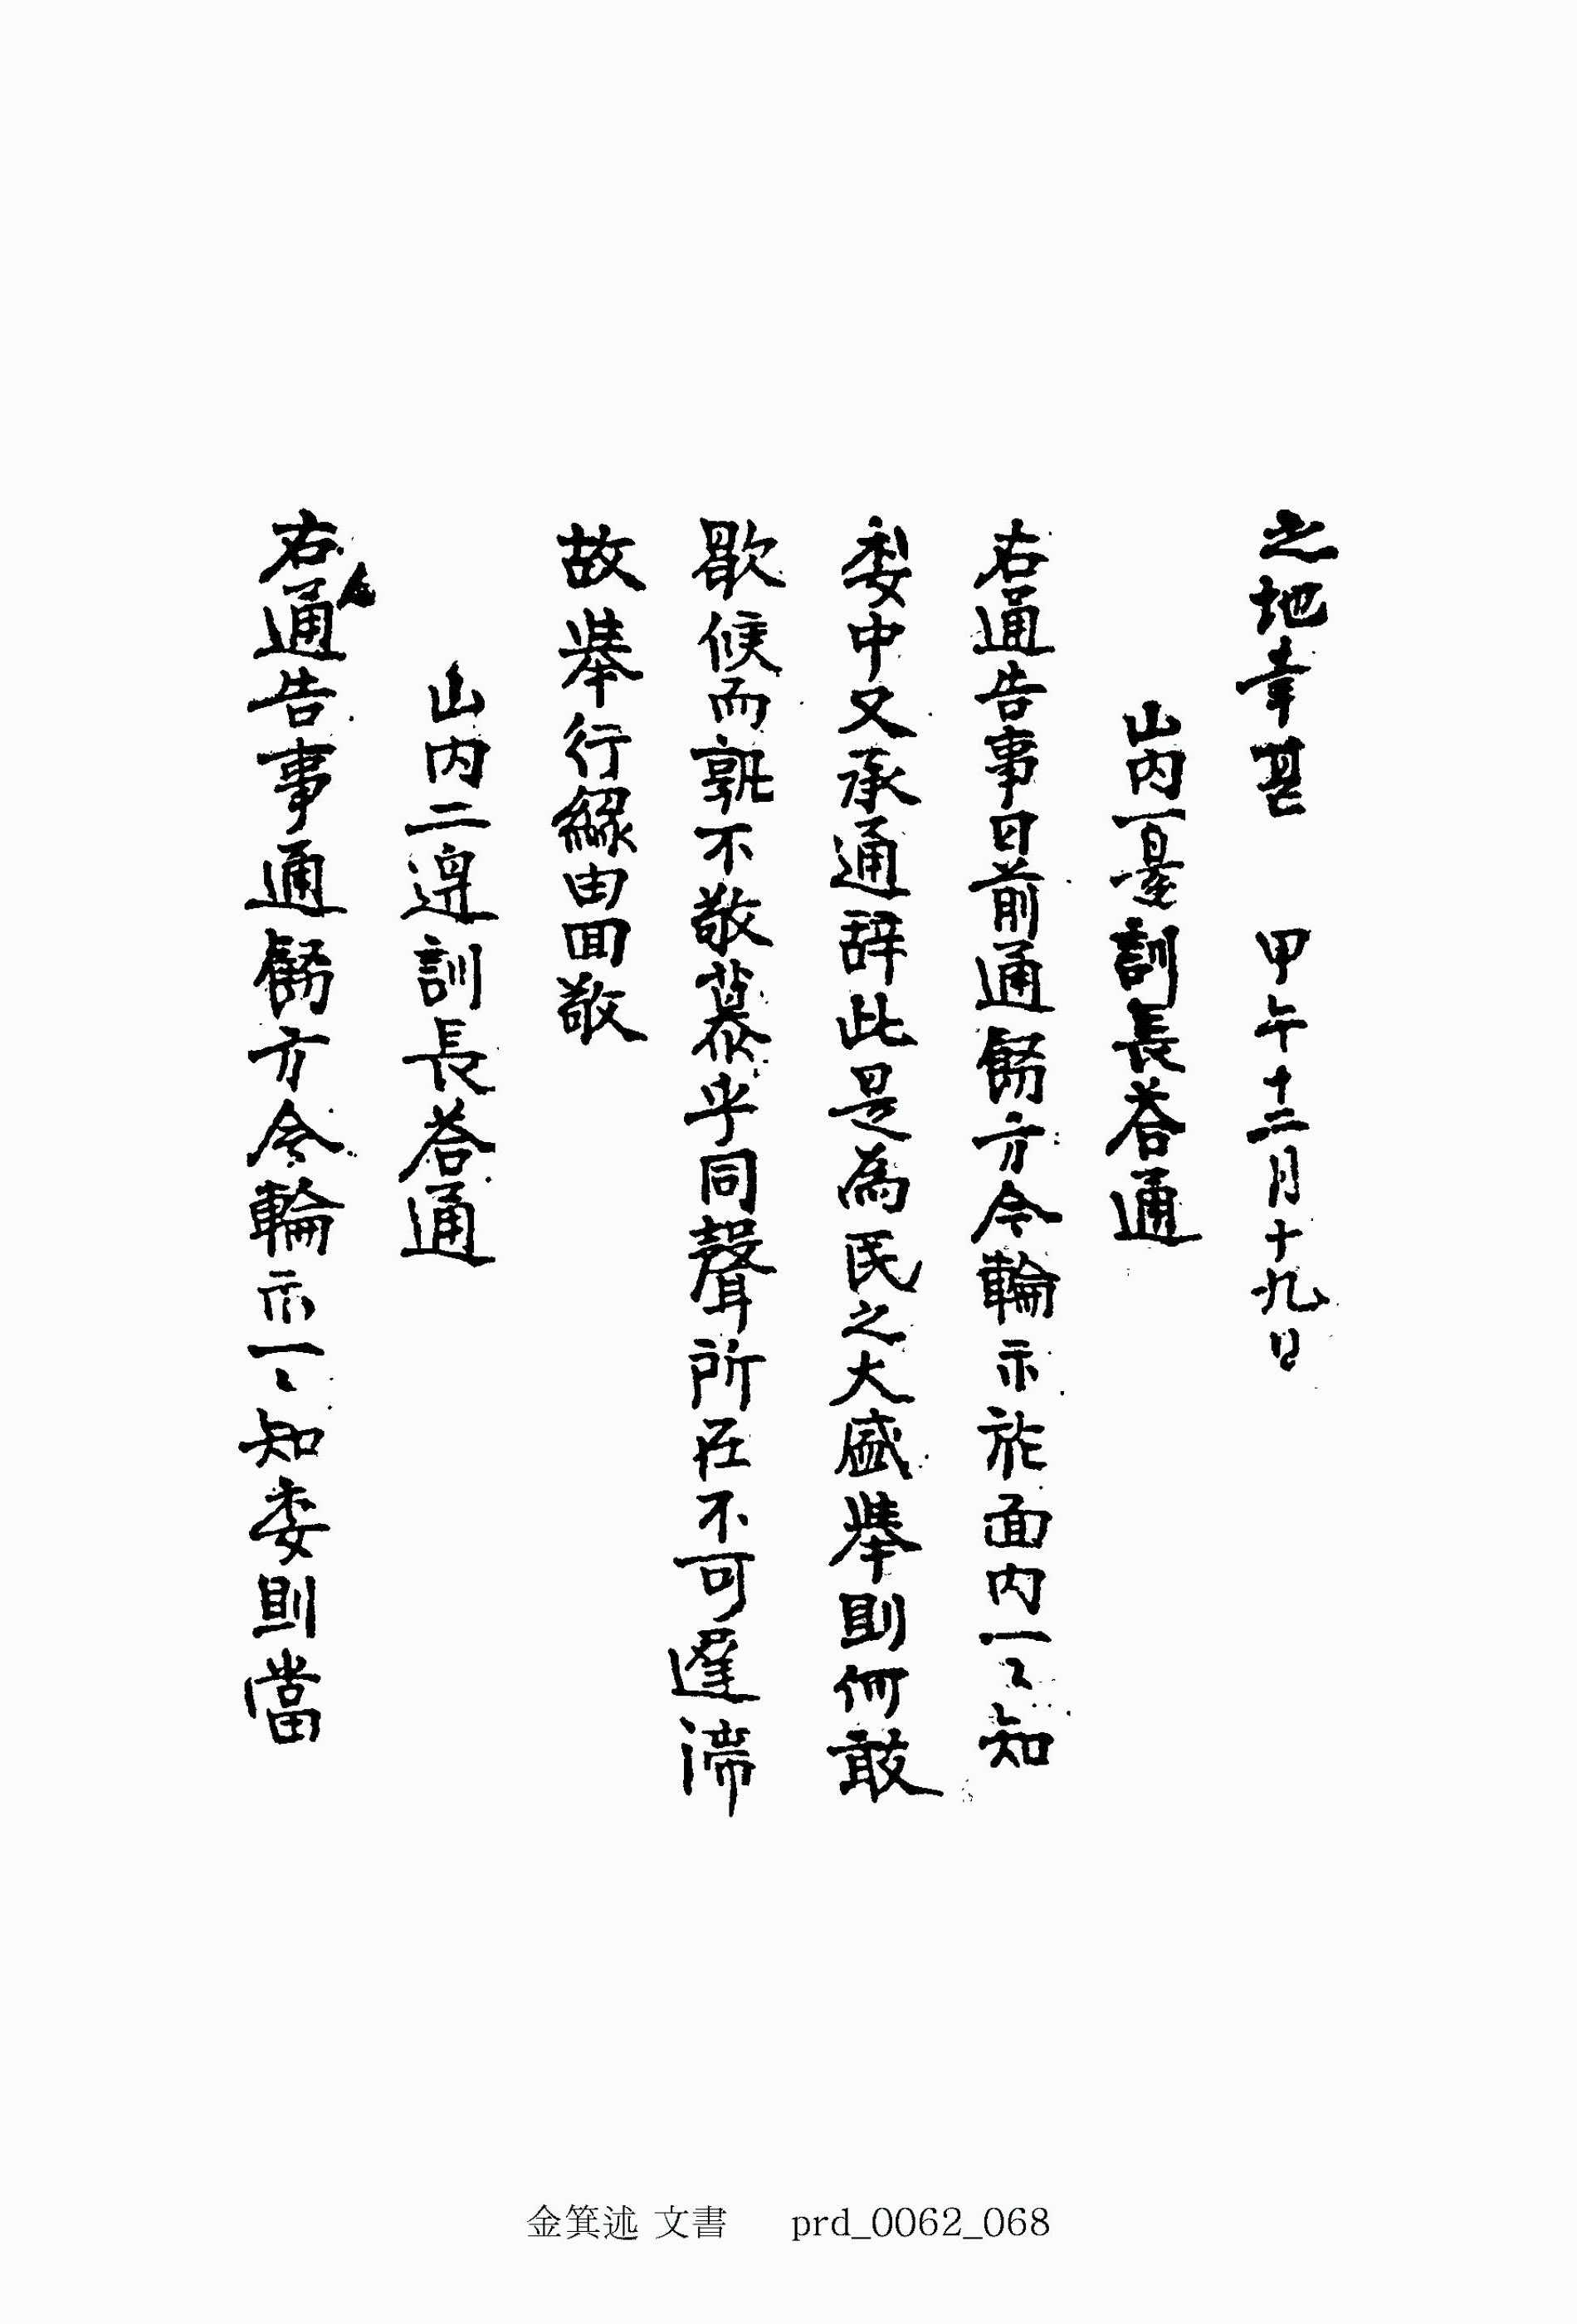 之地幸甚 甲午十二月十九日
山內一里訓長答通
右通告事日前通飭方令輪示於面內一〻知
委中又承通辞此是為民之大盛擧則何敢
歇候而孰不敬慕乎同聲所在不可遲滯
故擧行緣由回敬
山內二邊訓長答通
右通告事通飭方令輪示一〻知委則當
金箕述 文書 prd_0062_068